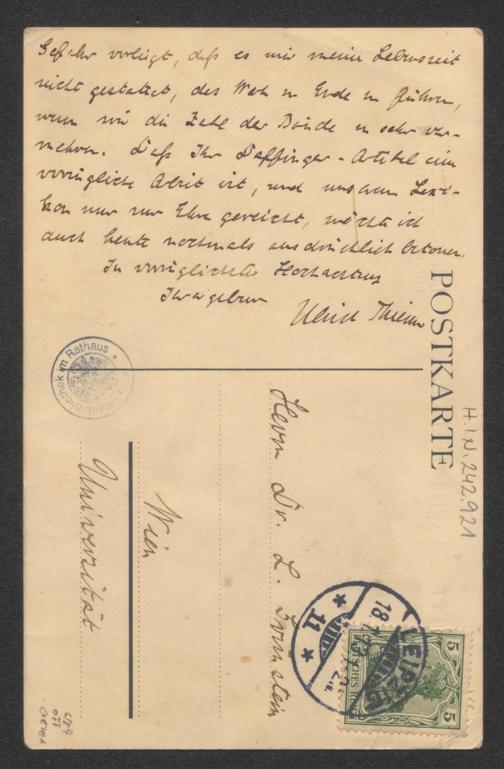 Gefahr vorliegt, daß es mir meine Lebenszeit
nicht gestattet, das Werk zu Ende zu führen,
wenn wir die Zahl der Bände zu sehr ver-
mehren. Daß Ihr Daffinger-Artikel eine
vorzügliche Arbeit ist, und unserem Lexi-
kon nur zur Ehre gereicht, möchte ich
auch heute nochmals ausdrücklich betonen.
In vorzüglichster Hochachtung
Ihr ergebener
Ulrich Thieme
POSTKARTE
Herrn Dr. L.
Wien
Universität
im Rathaus
H.I.N. 242.921
LEIPZIG
11
18.
5
5